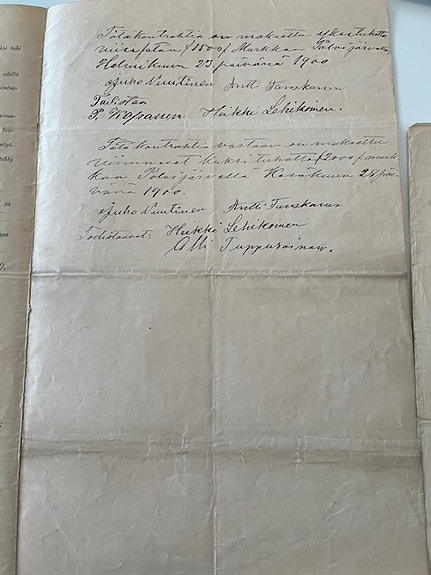 Tätä kontrahtia on maksettu yksituhatta
viisisataa /1500/ Markkaa Polvijärvellä
Helmikuun 23 päivänä 1900
Juho Nuutinen Antti Turskanen
Todistaa
P. Kapanen Heikki Lehikoinen.
Tätä kontrahtia vastaan on maksettu
viimmeset kaksi tuhatta /2000/ mark-
kaa Polvijärvellä Kesäkuun 28 päi-
vänä 1900.
Juho Nuutinen Antti Turskanen
Todistavat: Heikki Lehikoinen
Olli Tuppurainen.